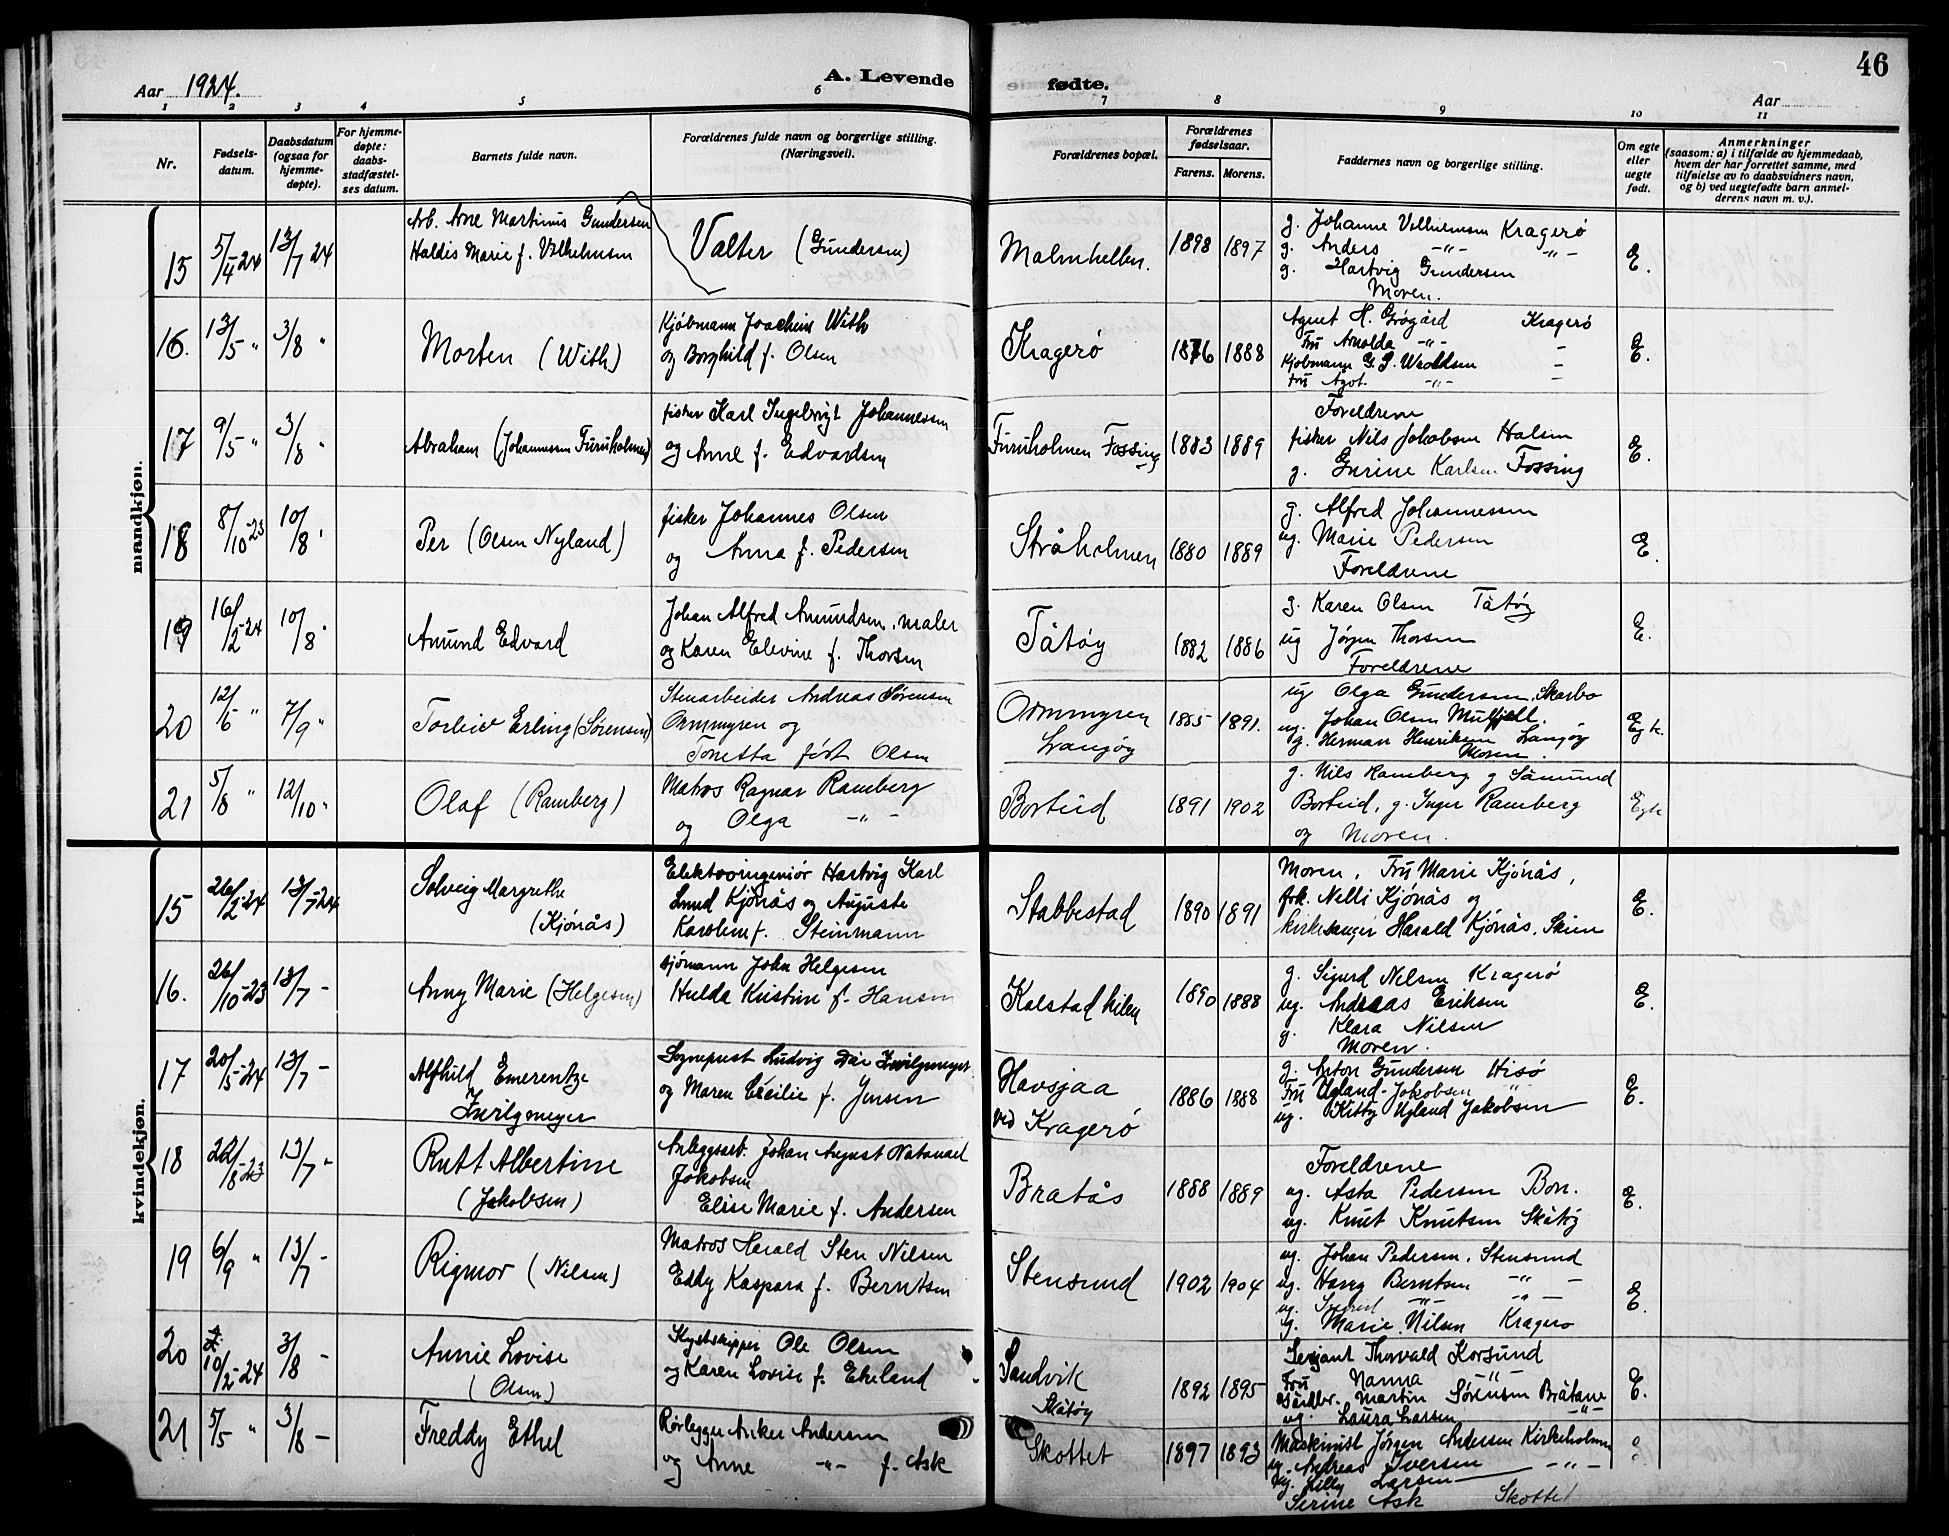 46
Aar 1924.
A. Levende fødte.
Aar
1 2 3 4 5 6 7 8 9 10 11
Nr.
Fødsels-
datum.
Daabsdatum
(ogsaa for
hjemme-
døpte).
For hjemme-
døpte:
daabs-
stadfæstel-
ses datum.
Barnets fulde navn.
Forældrenes fulde navn og borgerlige stilling.
(Næringsvei).
Forældrenes bopæl.
Forældrenes
fødselsaar.
Farens. Morens.
Faddernes navn og borgerlige stilling.
Om egte
eller
uegte
født.
Anmerkninger
(saasom: a) i tilfælde av hjemmedaab,
hvem der har forrettet samme, med
tilføielse av to daabsvidners navn,
og b) ved uegtefødte barn anmel-
derens navn m. v.).
mandkjøn.
15 5/4-24 13/7 24
Arb. Arne Martinus Gundersen
Haldis Marie f. Vilhelmsen
Valter (Gundersen)
Malmhellen. 1898 1897
g. Johanne Vilhelmsen Kragerø
g. Anders -"- -"-
g. Hartvig Gundersen
Moren.
E.
16. 13/5 " 3/8 "
Morten (With)
Kjöbmann Joachim With
og Borghild f. Olsen
Kragerø 1876 1888
Agent H. Grögård Kragerø
Fru Arnolda -"- -
Kjöbmann G. P. -
Fru Agot. -"- -
E.
17 9/5 " 3/8 "
Abraham (Johannessen Furuholmen)
fisker Karl Ingebrigt Johannessen
og Anne f. Edvardsen
Furuholmen Fossing 1883 1889
Foreldrene
fisker Nils Jakobsen Halsen
g. Gurine Karlsen Fossing
E.
18 8/10-23 10/8 "
Per (Olsen Nyland)
fisker Johannes Olsen
og Anna f. Pedersen
Stråholmen 1880 1889
g. Alfred Johannessen
ug. Marie Pedersen
Foreldrene
E.
19 16/2-24 10/8 "
Amund Edvard
Johan Alfred Amundsen, maler
og Karen Elevine f. Thorsen
Tåtøy 1882 1886
g. Karen Olsen Tåtøy
ug Jørgen Thorsen
Foreldrene
E.
20 12/6 " 7/9 "
Torleiv Erling (Sørensen)
Stenarbeider Andreas Sørensen
Ormmyren og
Tonetta født Olsen
Ormmyren
Langøy
1885 1891.
ug Olga Gundersen, Skarbo
ug. Johan Olsen
g. Herman Henriksen Langøy
Moren.
Egte.
21 5/8 " 12/10 "
Olaf (Ramberg)
Matros Ragnar Ramberg
og Olga -"-
Borteid 1891 1902
g. Nils Ramberg g Sämund
Borteid, g. Inger Ramberg
og Moren.
Egte
kvindekjøn.
15 26/2-24 13/7-24
Solveig Margrethe
(Kjönås)
Elektroingeniør Hartvig Karl
Lund Kjönås og Auguste
Karoline f. Steinmann
Stabbestad 1890 1891
Moren, Fru Marie Kjönås,
frk. Nelli Kjönås og
kirkesanger Harald Kjönås, Skien
E.
16. 26/10-23 13/7 -
Anny Marie (Helgesen)
sjömann John Helgesen
Hulda Kristine f. Hansen
Kalstadkilen 1890 1888
g. Sigurd Nilsen Kragerø
ug. Andreas Eriksen
g. Klara Nilsen
Moren.
E.
17 20/5-24 13/7 -
Alfhild Emerentze
Zwilgmeyer
Sogneprest Ludvig Daae Zwilgmeyer
og Maren Cecilie f. Jensen
Havsjaa
ved Kragerø
1886 1888
g. Anton Gundersen Hisö
Fru Ugland-Jakobsen "
ug. Kitty Ugland Jakobsen
E.
18 22/8-23 13/7 -
Rutt Albertine
(Jakobsen)
Anleggsarb. Johan August Natanael
Jakobsen
Elise Marie f. Andersen
Bratås 1888 1889
Foreldrene
ug. Asta Pedersen Bon.
ug. Knut Knutsen Skåtöy
E.
19 6/9 " 13/7 -
Rigmor (Nilsen)
Matros Harald Sten Nilsen
Eddy Kaspara f. Berntsen
Stensund 1902 1904
ug. Johan Pedersen, Stensund
ug. Hans Berntsen -"-
ug. Sigrid -"- -"-
g. Marie Nilsen Kragerø
E.
20 10/2-24 3/8 -
Annie Lovise
(Olsen)
Kystskipper Ole Olsen
og Karen Lovise f. Ekeland
Sandvik
Skåtöy
1892 1895
Sersjant Thorvald Korsund
Fru Nanna -"-
Gårdbr. Martin Sørensen Bråtane
ug. Laura Larsen -"-
E.
21 5/5 " 3/8 -
Freddy Ethel
Rørlegger Anker Andersen
og Anne -"- f. Ask
Skottet 1897 1893
Maskinist Jørgen Andersen Kirkeholmen
ug. Andreas Iversen -"-
ug. Lilly Larsen
Serine Ask Skottet